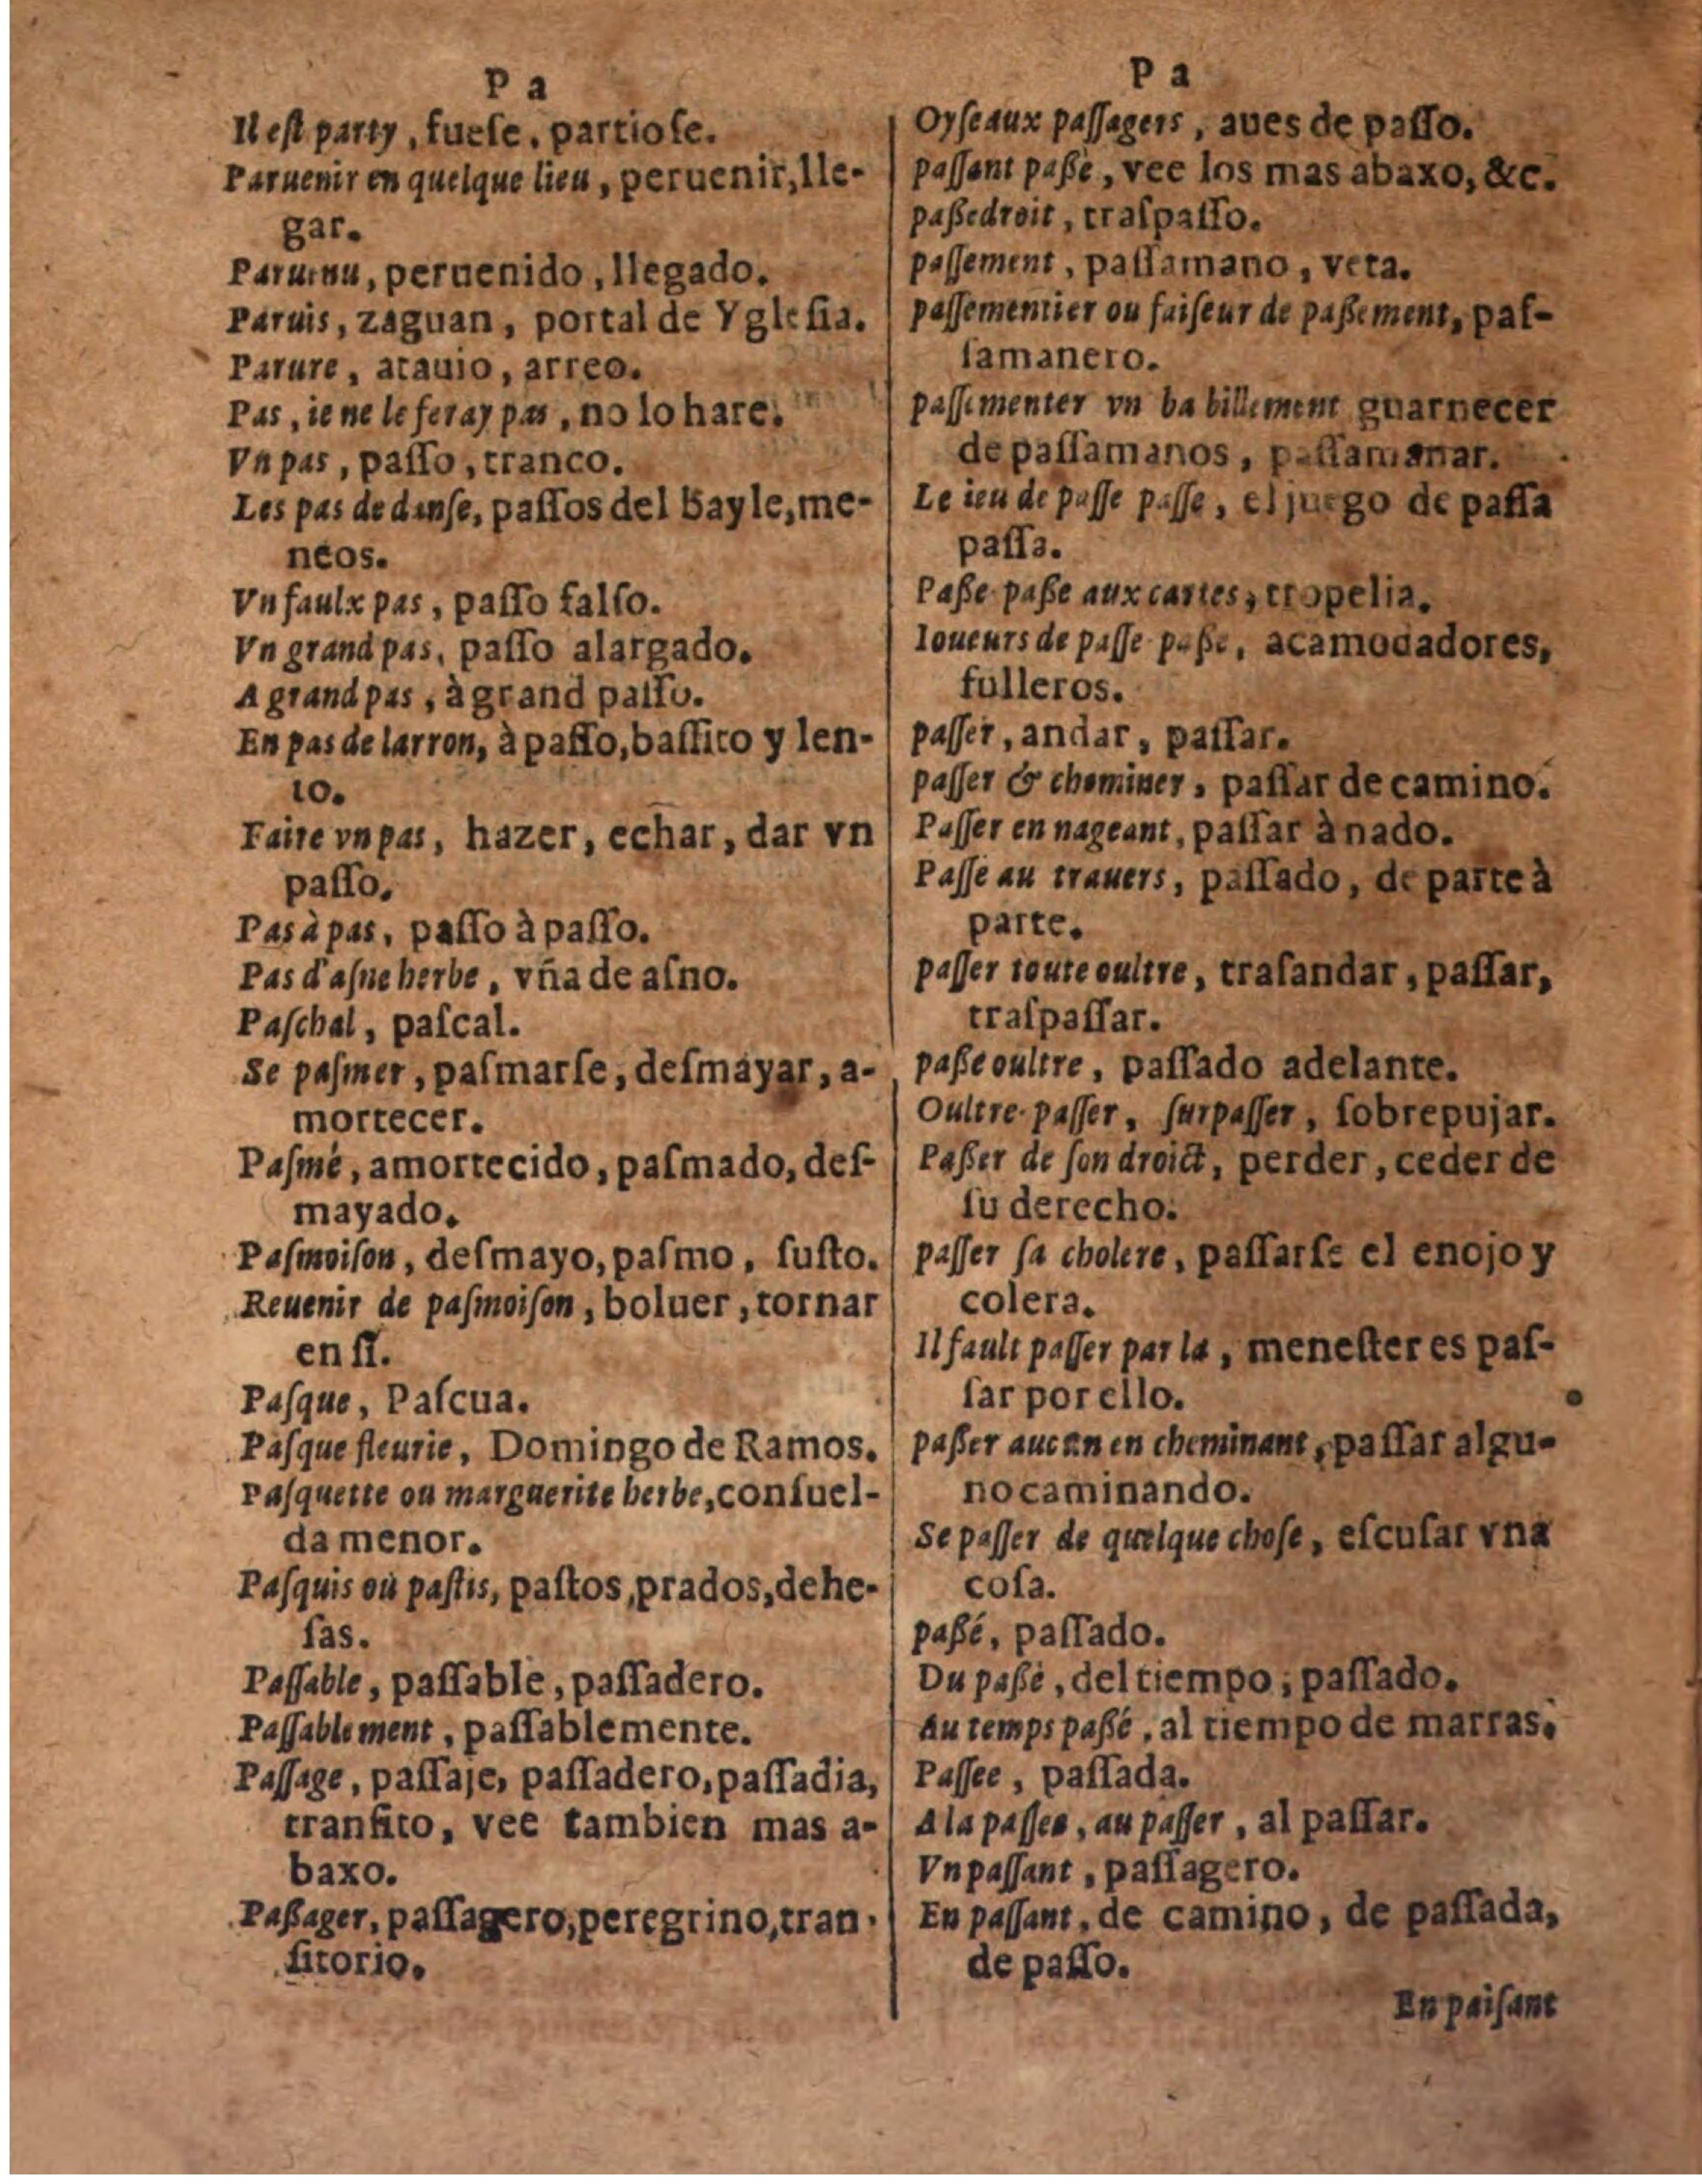 P a
Il eſt party, fueſe, partioſe.
Paruenir en quelque lieu, peruenir, lle-
gar.
Paruenu, peruenido, llegado.
Paruis, zaguan, portal de Ygleſia.
Parure, atauio, arreo.
Pas, ie ne le feray pas, no lo hare.
Vn pas, paſſo, tranco.
Les pas de danſe, paſſos del bayle, me-
neos.
Vn faulx pas, paſſo falſo.
Vn grand pas, paſſo alargado.
A grand pas, à grand paſſo.
En pas de larron, à paſſo, baſſito y len-
to.
Faire vn pas, hazer, echar, dar vn
paſſo.
Pas à pas, paſſo à paſſo.
Pas d'aſne herbe, vña de aſno.
Paſchal, paſcal.
Se paſmer, paſmarſe, deſmayar, a-
mortecer.
Paſmé, amortecido, paſmado, deſ-
mayado.
Paſmoiſon, deſmayo, paſmo, ſuſto.
Reuenir de paſmoiſon, boluer, tornar
en ſi.
Paſque, Paſcua.
Paſque fleurie, Domingo de Ramos.
Paſquette ou marguerite herbe, conſuel-
da menor.
Paſquis ou paſtis, paſtos, prados, dehe-
ſas.
Paſſable, paſſable, paſſadero.
Paſſablement, paſſablemente.
Paſſage, paſſaje, paſſadero, paſſadia,
tranſito, vee tambien mas a-
baxo.
Paßager, paſſagero, peregrino, tran-
ſitorio.
P a
Oyſeaux paſſagers, aues de paſſo.
paſſant paßè, vee los mas abaxo, &c.
paßedroit, traſpaſſo.
paſſement, paſſamano, veta.
paſſementier ou faiſeur de paßement, paſ-
ſamanero.
paſſementer vn babillement guarnecer
de paſſamanos, paſſamanar.
Le ieu de paſſe paſſe, el juego de paſſa
paſſa.
Paße-paße aux cartes, tropelia.
Ioueurs de paſſe-paße, acamodadores,
fulleros.
paſſer, andar, paſſar.
paſſer & cheminer, paſſar de camino.
Paſſer en nageant, paſſar à nado.
Paſſe au trauers, paſſado, de parte à
parte.
paſſer toute oultre, traſandar, paſſar,
traſpaſſar.
paße oultre, paſſado adelante.
Oultre-paſſer, ſurpaſſer, ſobrepujar.
Paßer de ſon droict, perder, ceder de
ſu derecho.
paſſer ſa cholere, paſſarſe el enojo y
colera.
Il fault paſſer par la, meneſter es paſ-
ſar por ello.
paßer aucun en cheminant, paſſar algu-
no caminando.
Se paſſer de quelque choſe, eſcuſar vna
coſa.
paßé, paſſado.
Du paßé, del tiempo, paſſado.
Au temps paßé, al tiempo de marras.
Paſſee, paſſada.
A la paſſee, au paſſer, al paſſar.
Vn paſſant, paſſagero.
En paſſant, de camino, de paſſada,
de paſſo.
En paiſant